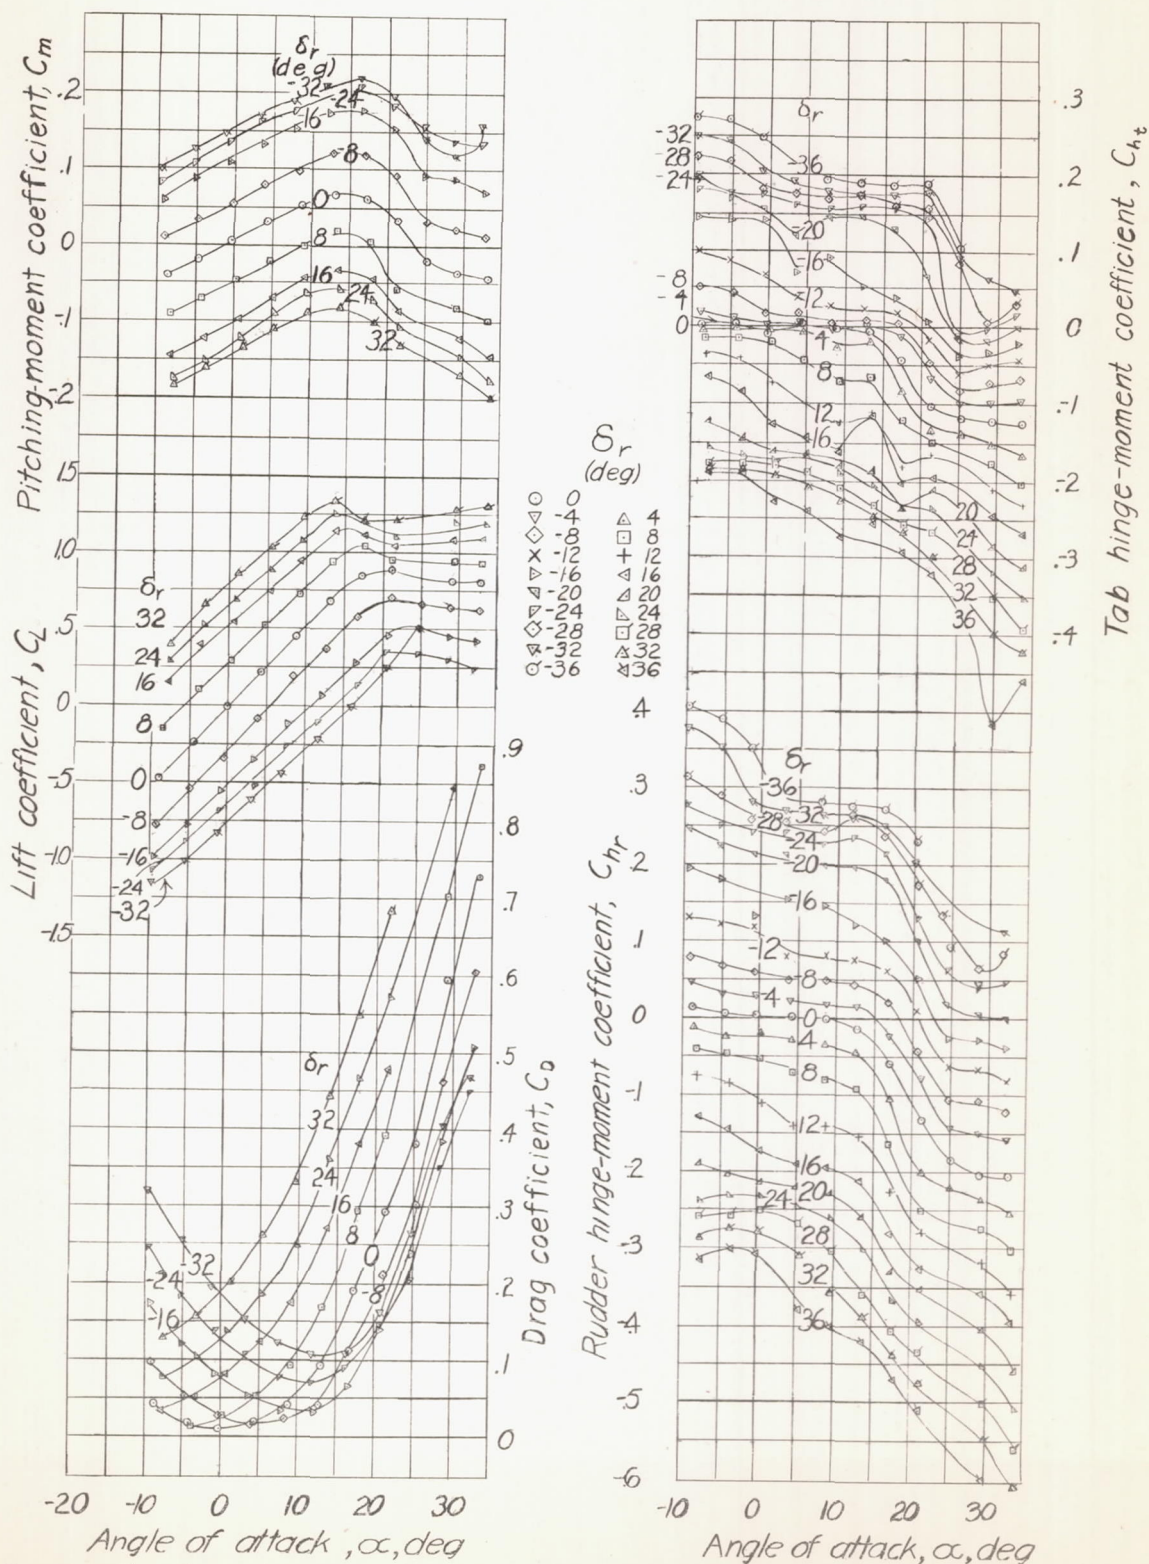 Pitching-moment coefficient, Cm
.2
.1
0
-.1
-.2
δr
(deg)
-32
-24
-16
-8
0
8
16
24
32
Lift coefficient, CL
1.5
1.0
.5
0
-.5
-1.0
-1.5
δr
32
24
16
8
0
-8
-16
-24
-32
Drag coefficient, CD
.9
.8
.7
.6
.5
.4
.3
.2
.1
0
δr
32
24
16
8
0
-8
-32
-24
-16
-20 -10 0 10 20 30
Angle of attack, α, deg
δr
(deg)
0
-4 4
-8 8
-12 12
-16 16
-20 20
-24 24
-28 28
-32 32
-36 36
Tab hinge-moment coefficient, Cht
.3
.2
.1
0
-.1
-.2
-.3
-.4
δr
-36
-32
-28
-24
-20
-16
-12
-8
-4
0
4
8
12
16
20
24
28
32
36
Rudder hinge-moment coefficient, Chr
.4
.3
.2
.1
0
-.1
-.2
-.3
-.4
-.5
-.6
δr
-36
-32
-28
-24
-20
-16
-12
-8
-4
0
4
8
12
16
20
24
28
32
36
-10 0 10 20 30
Angle of attack, α, deg